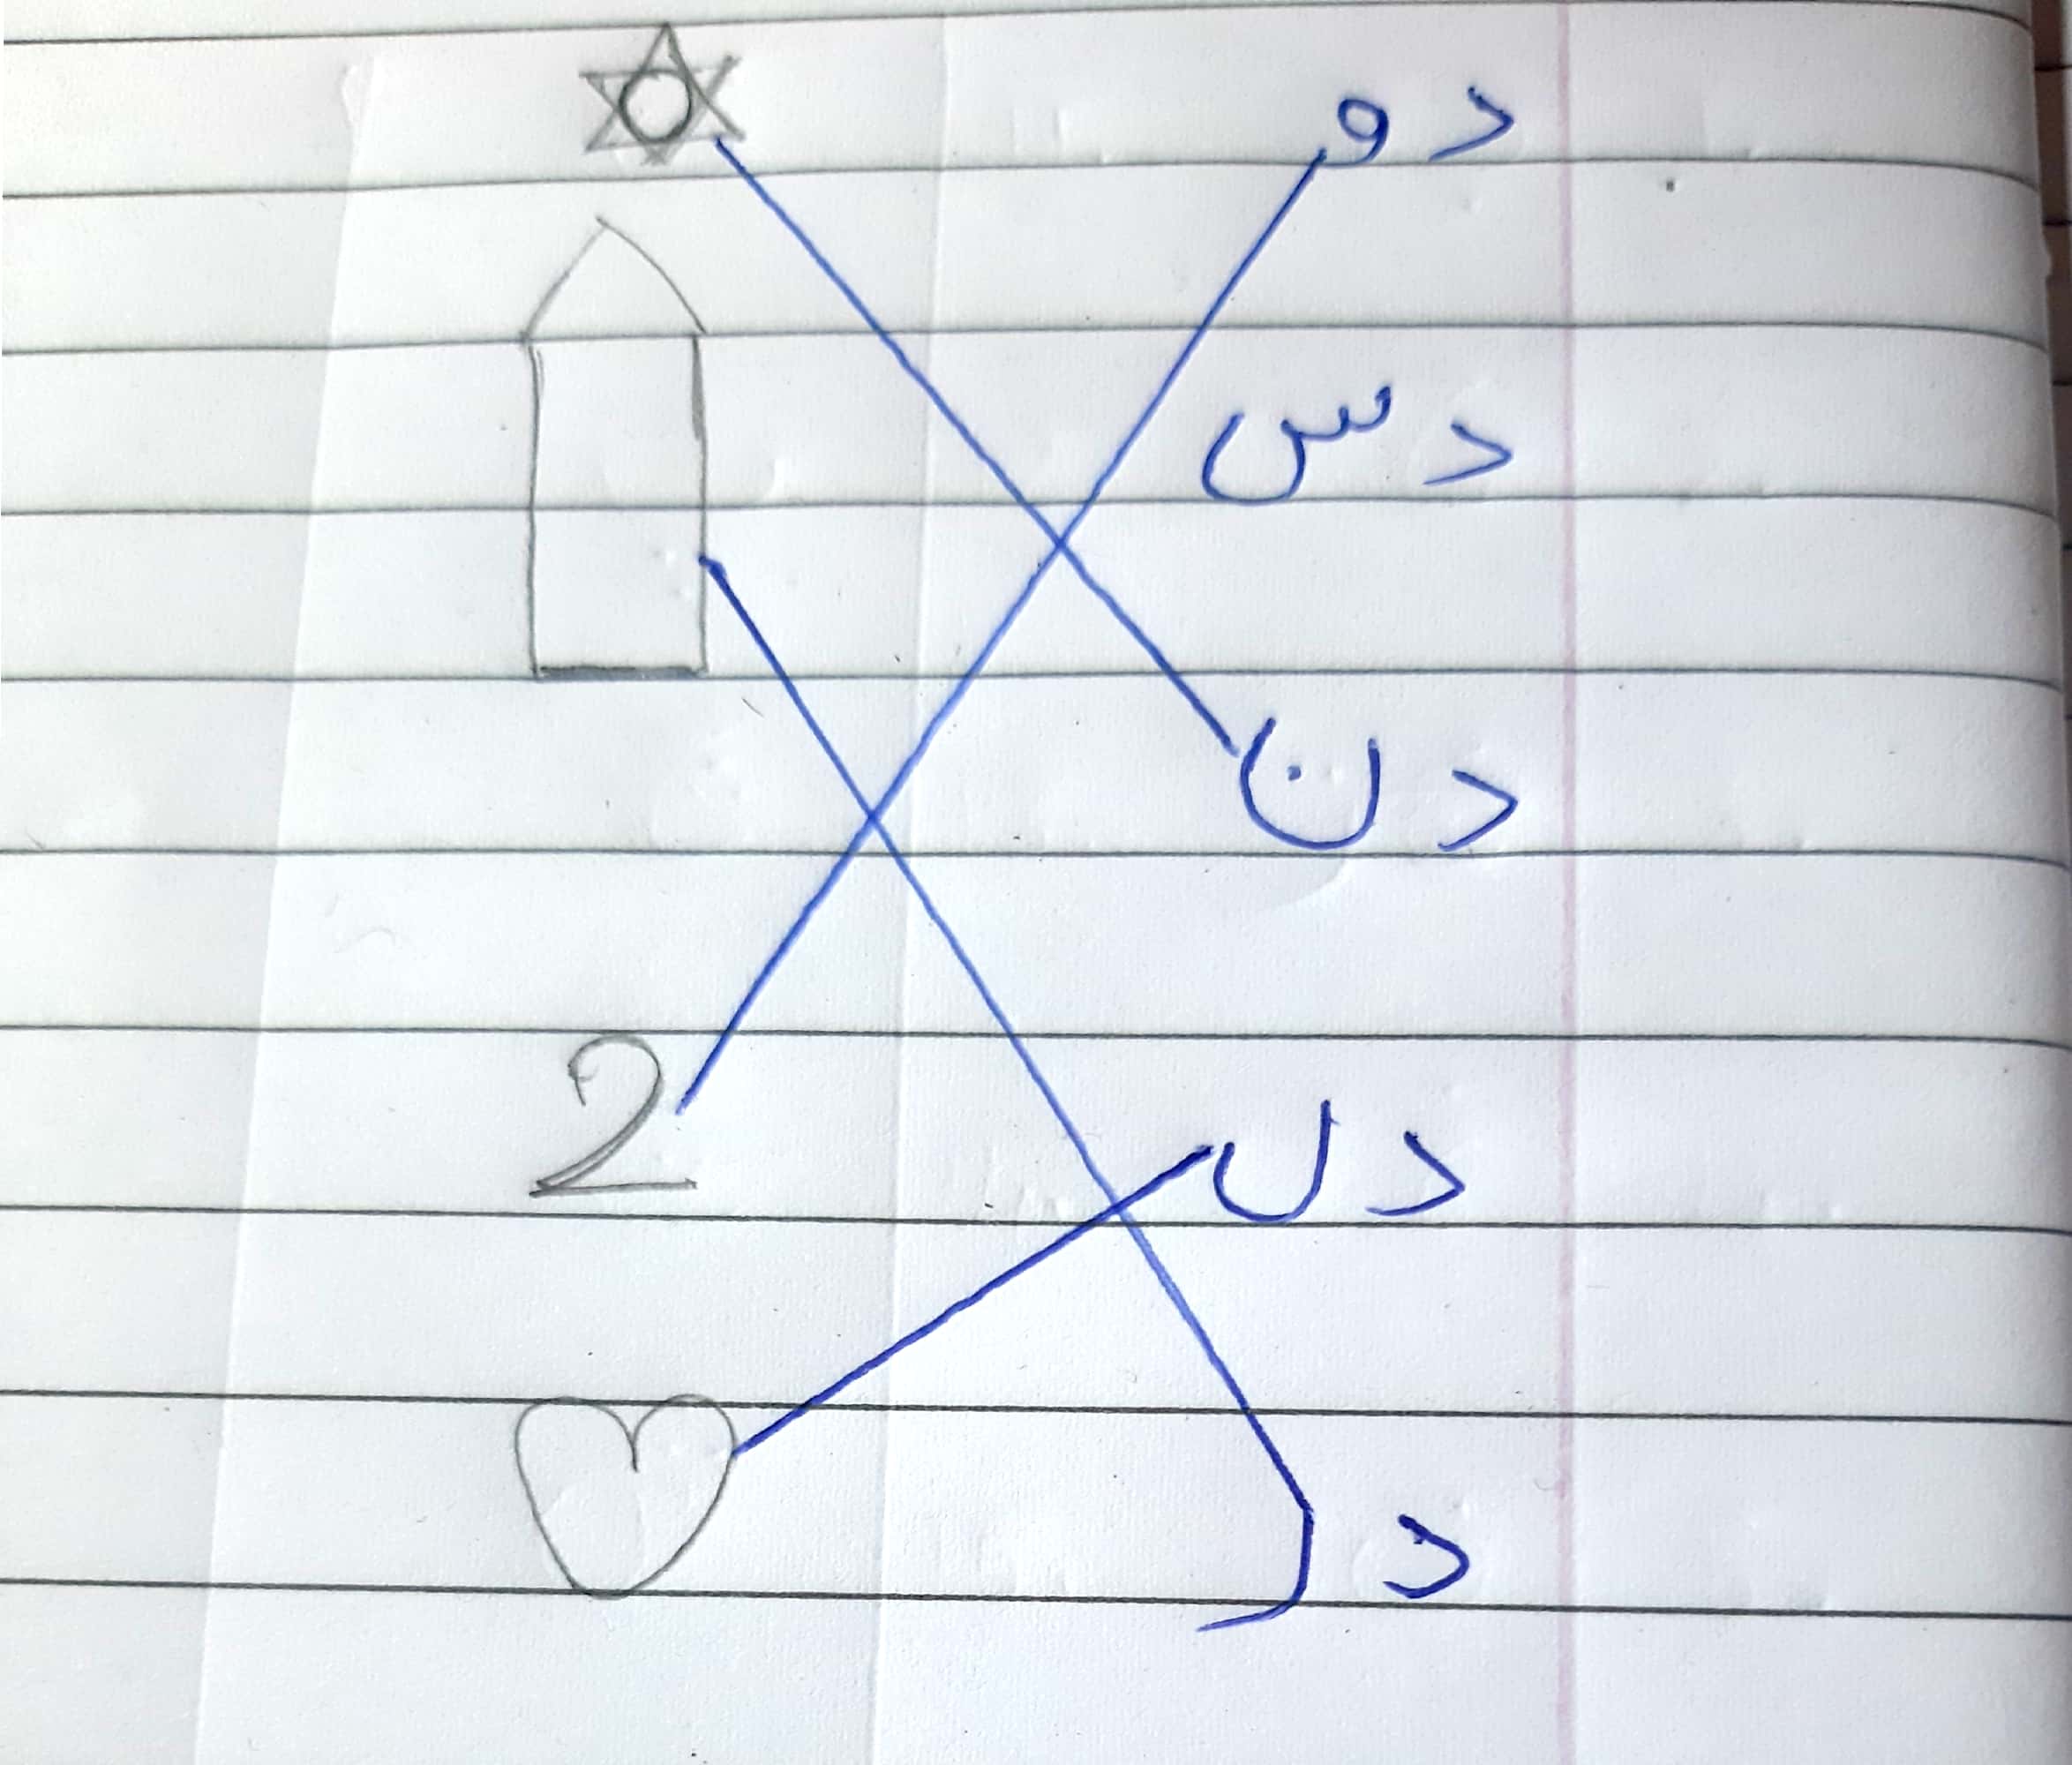 دو
دس
دن
2
دل
در